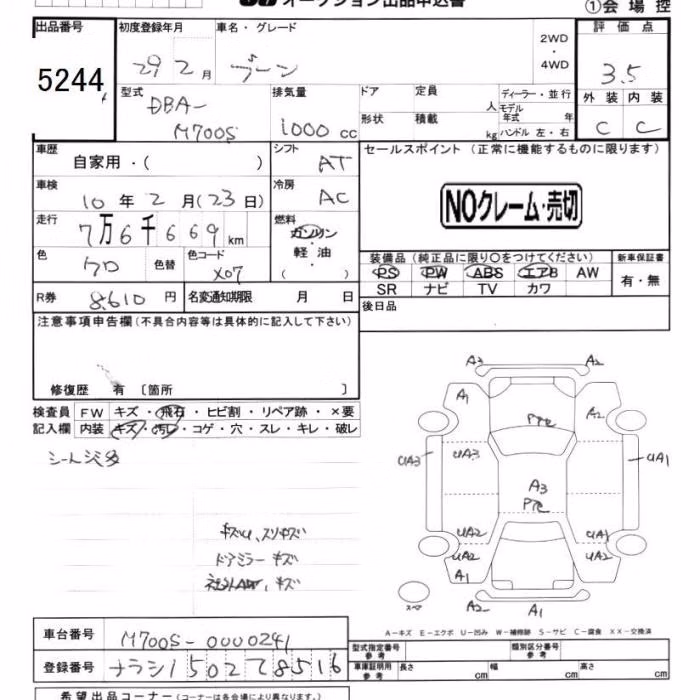 オークション出品申込書
①会場控
出品番号
5244
初度登録年月
29 2月
車名・グレード
ブーン
2WD
・
4WD
評価点
3.5
外装 内装
C C
型式
DBA-
M700S
排気量
1000 cc
ドア
定員
人
形状
積載
kg
ディーラー・並行
モデル
年式 年
ハンドル 左・右
車歴
自家用・( )
シフト
AT
車検
10年2月(23日)
冷房
AC
走行
7万6千669km
燃料
ガソリン
・
軽油
・
( )
色
クロ
色替
色コード
X07
R券
8,610 円
名変通知期限 月 日
セールスポイント(正常に機能するものに限ります)
NOクレーム・売切
装備品(純正品に限り○をつけてください)
新車保証書
PS PW ABS エアB AW
SR ナビ TV カワ
有・無
後日品
注意事項申告欄(不具合内容等は具体的に記入して下さい)
修復歴 有〔箇所 〕
検査員
記入欄
FW キズ・飛石・ヒビ割・リペア跡・×要
内装 キズ・汚レ・コゲ・穴・スレ・キレ・破レ
シート
キズU、スリキズ
ドアミラー キズ
キズ
A3 A2
A1 A2
UA3 UA3 UA1
A3
UA2 UA1
UA2 UA2
A1
スペア
A2 A1
A-キズ E-エクボ U-凹み W-補修跡 S-サビ C-腐食 XX-交換済
車台番号
M700S-0000241
登録番号
ナラシ1502て8516
型式指定番号
参考
類別区分番号
参考
車庫証明用
参考
長さ cm
幅 cm
高さ cm
希望出品コーナー(コーナーは各会場により異なります。)